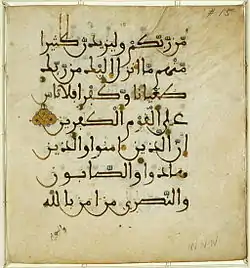 مِن رَّبِّكُمْ وَلَيَزِيدَنَّ كَثِيرًا
مِّنْهُم مَّا أُنزِلَ إِلَيْكَ مِن رَّبِّكَ
طُغْيَٰنًا وَكُفْرًا فَلَا تَأْسَ
عَلَى الْقَوْمِ الْكَٰفِرِينَ
إِنَّ الَّذِينَ ءَامَنُوا وَالَّذِينَ
هَادُوا وَالصَّٰبُِٔونَ
وَالنَّصَٰرَىٰ مَنْ ءَامَنَ بِاللَّهِ
# 15